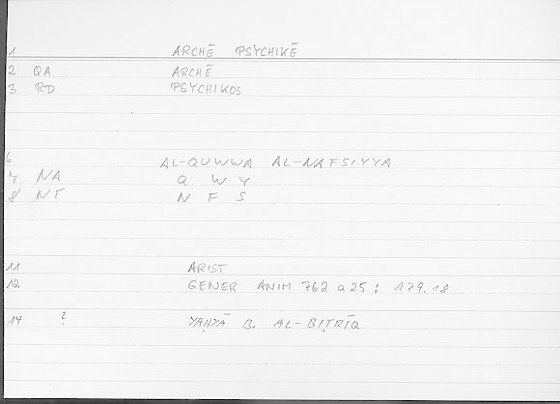 1 ARCHĒ PSYCHIKĒ
2 QA ARCHĒ
3 RD PSYCHIKOS
6 AL-QUWWA AL-NAFSIYYA
7 NA Q W Y
8 NT N F S
11 ARIST
12 GENER ANIM 762 a 25 : 179.18
14 ? YAḤYĀ B. AL-BIṬRĪQ